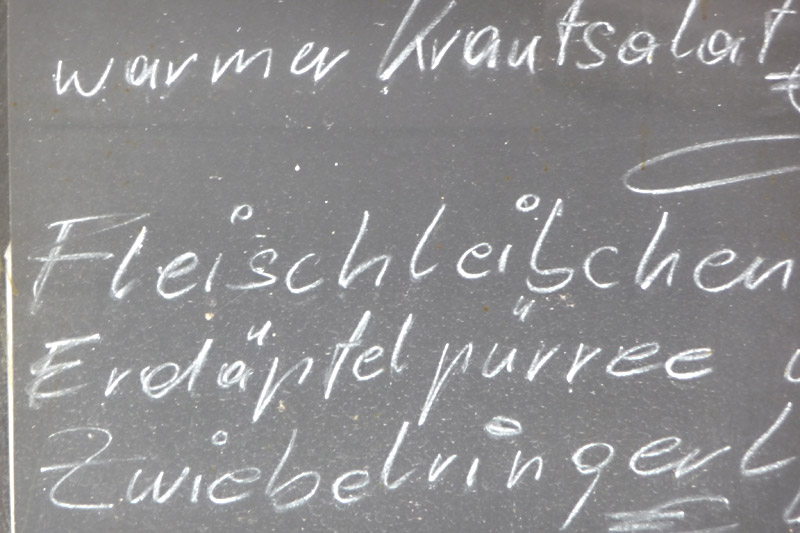 warmer Krautsalat
Fleischleibchen
Erdäpfelpürree
Zwiebelringerl